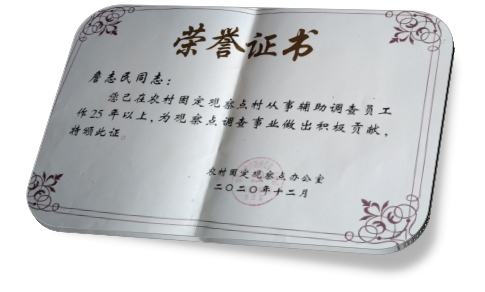 荣誉证书
詹志民同志：
您已在农村固定观察点村从事辅助调查员工
作25年以上，为观察点调查事业做出积极贡献，
特颁此证。
农村固定观察点办公室
二〇二〇年十二月